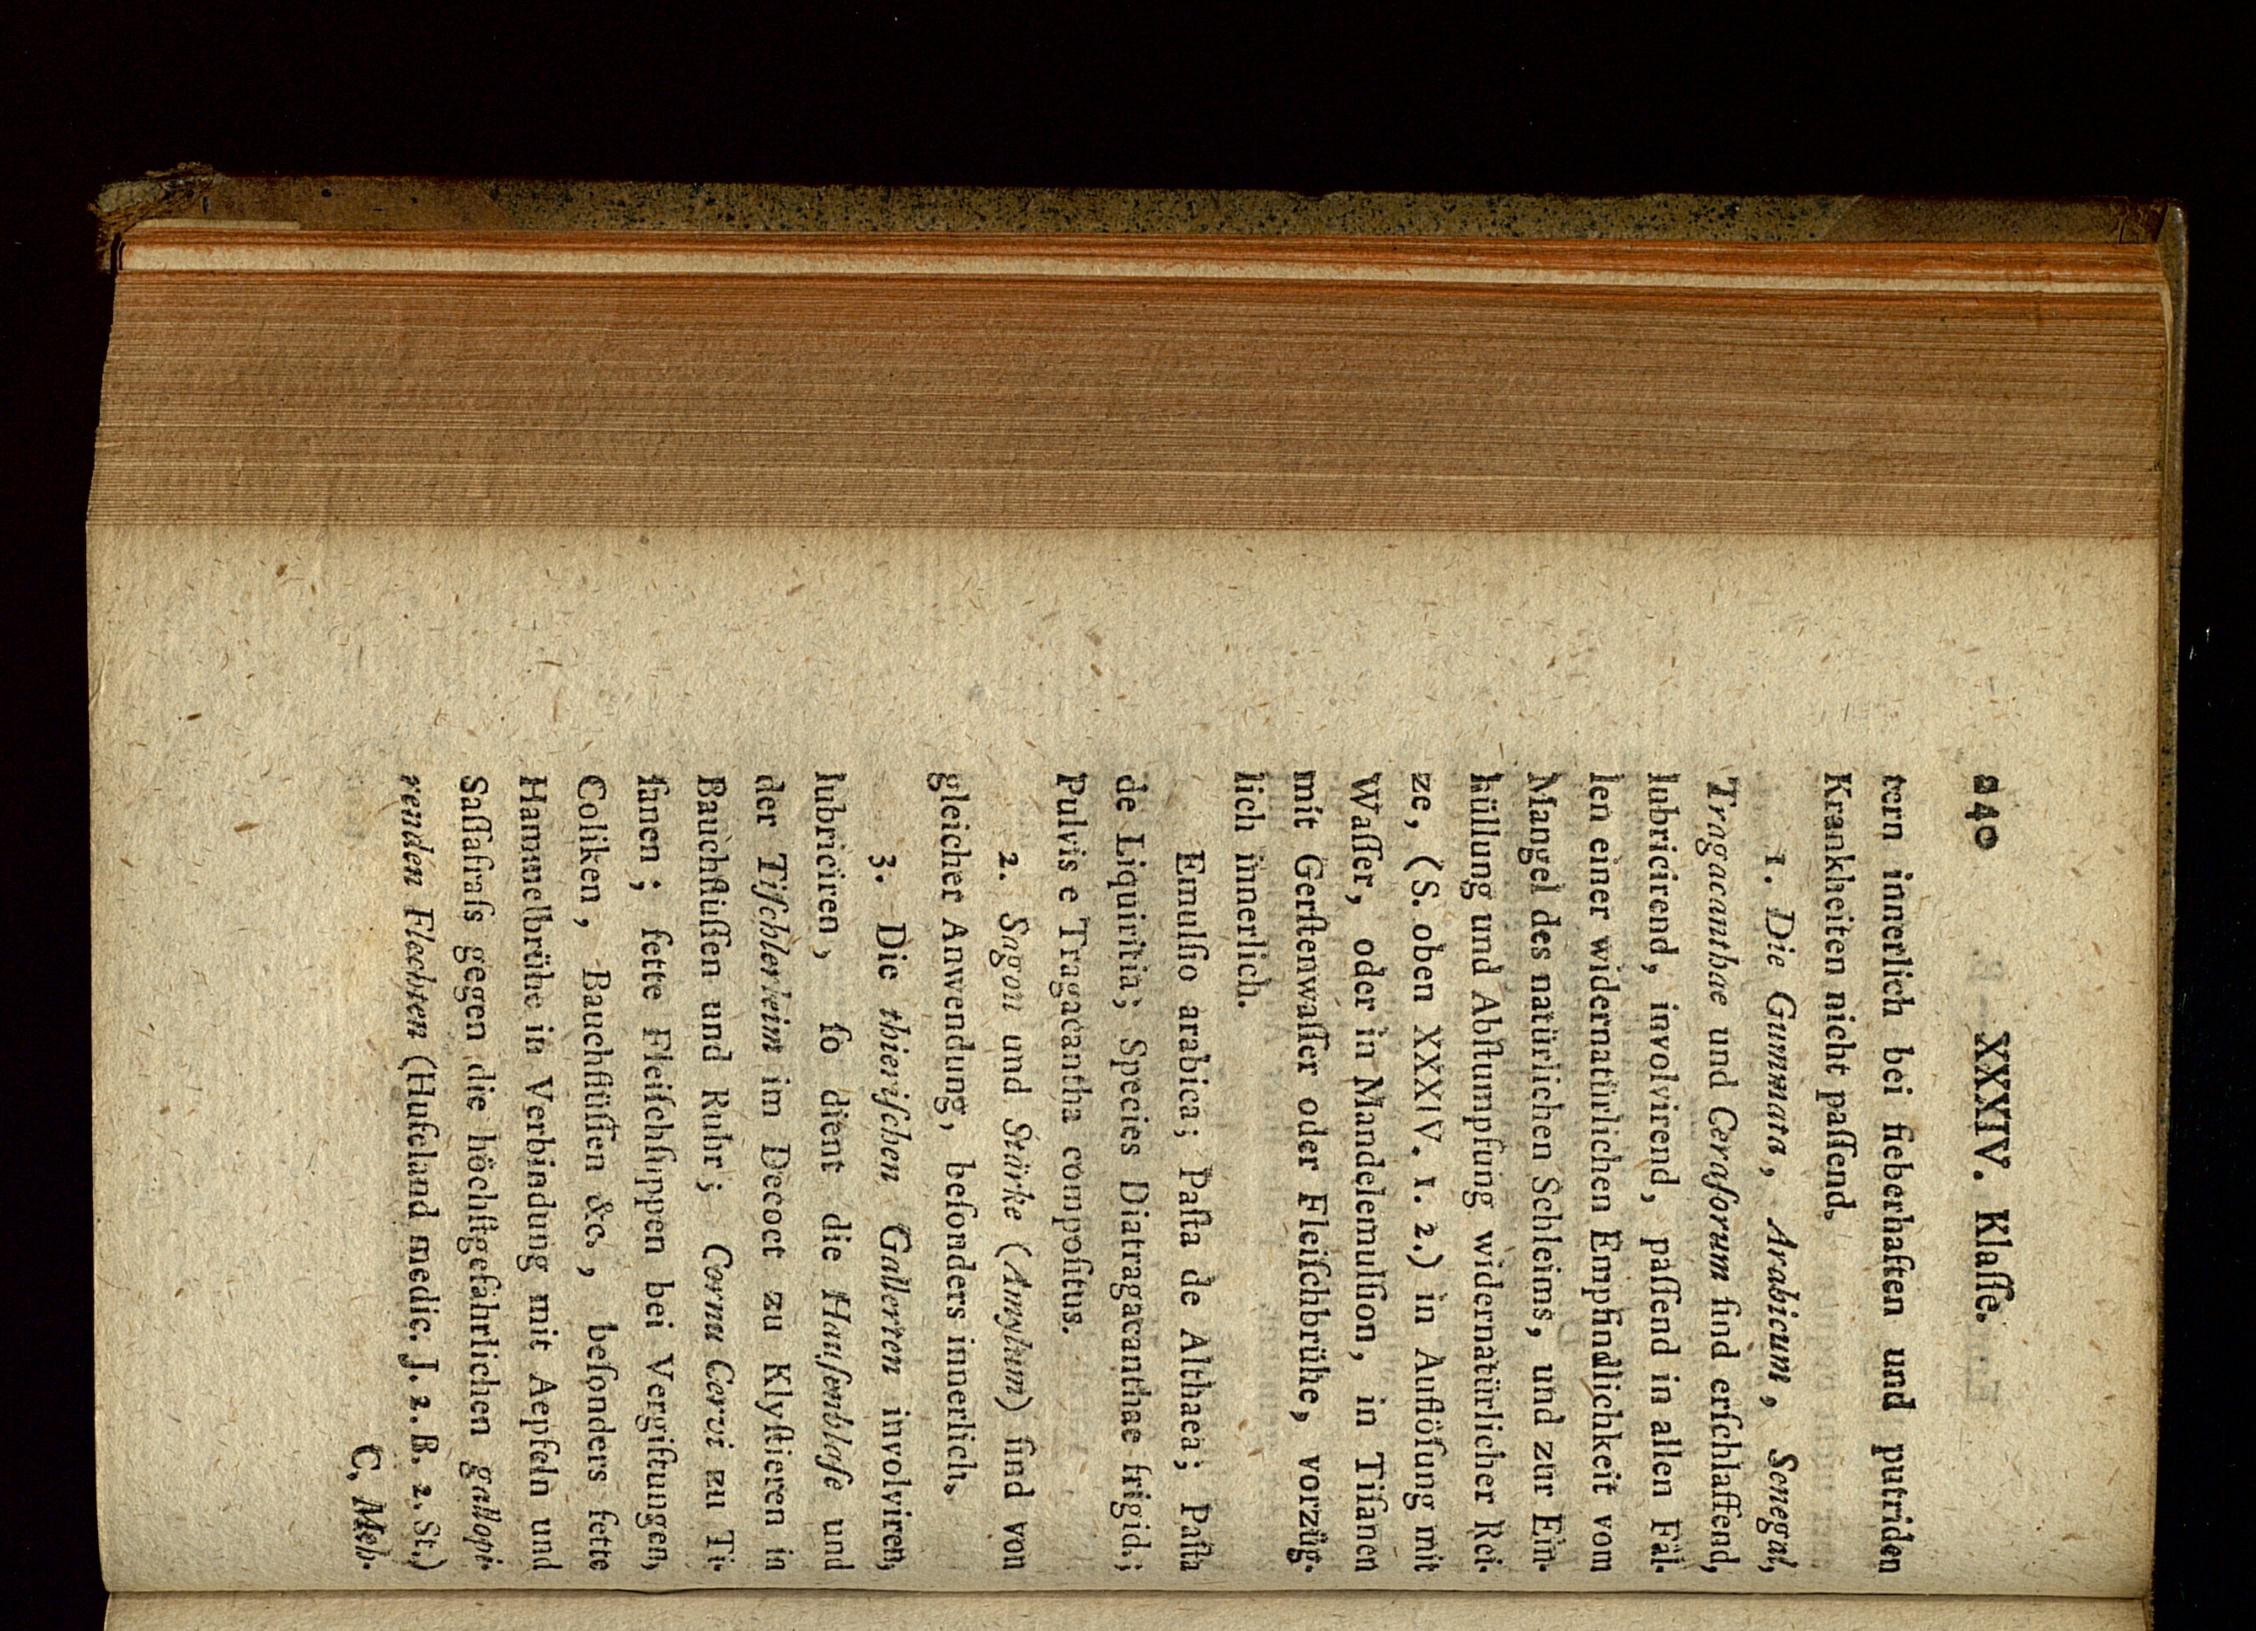 240 XXXIV. Klaſſe.
tern innerlich bei fieberhaften und putriden
Krankheiten nicht paſſend.
1. Die Gummata, Arabicum, Senegal,
Tragacanthae und Ceraſorum ſind erſchlaffend,
lubricirend, involvirend, paſſend in allen Fäl-
len einer widernatürlichen Empfindlichkeit vom
Mangel des natürlichen Schleims, und zur Ein-
hüllung und Abſtumpfung widernatürlicher Rei-
ze, (S. oben XXXIV. 1. 2.) in Auflöſung mit
Waſſer, oder in Mandelemulſion, in Tiſanen
mit Gerſtenwaſſer oder Fleiſchbrühe, vorzüg-
lich innerlich.
Emulſio arabica; Paſta de Althaea; Paſta
de Liquiritia; Species Diatragacanthae frigid.;
Pulvis e Tragacantha compoſitus.
2. Sagou und Stärke (Amylum) ſind von
gleicher Anwendung, beſonders innerlich.
3. Die thieriſchen Gallerten involviren,
lubriciren, ſo dient die Hauſenblaſe und
der Tiſchlerleim im Decoct zu Klyſtieren in
Bauchflüſſen und Ruhr; Cornu Cervi zu Ti-
ſanen; fette Fleiſchſuppen bei Vergiftungen,
Coliken, Bauchflüſſen &c., beſonders fette
Hammelbrühe in Verbindung mit Aepfeln und
Saſſafraſs gegen die höchſtgefährlichen gallopi-
renden Flechten (Hufeland medic. J. 2. B. 2. St.)
C. Meh-